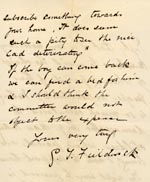 subscribe something towards
your home, It does seem
such a pity that the nice
lad deteriorating"
If the boy can come back
we can find a bed for him
& I should think the
committee would not
object to the expense
Yours very truly